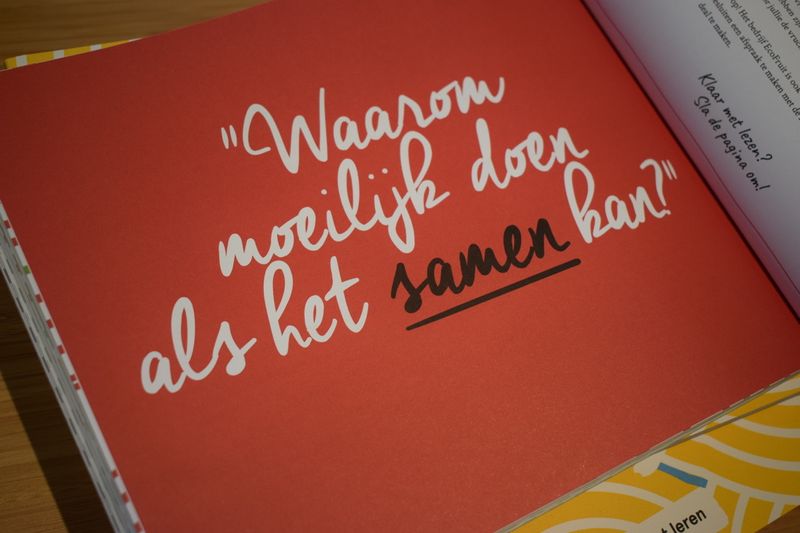 "Waarom
moeilijk doen
als het samen kan?"
op! Het bedrijf EcoFruit is ook
een afspraak te maken met de
deal te maken.
Klaar met lezen?
Sla de pagina om!
leren